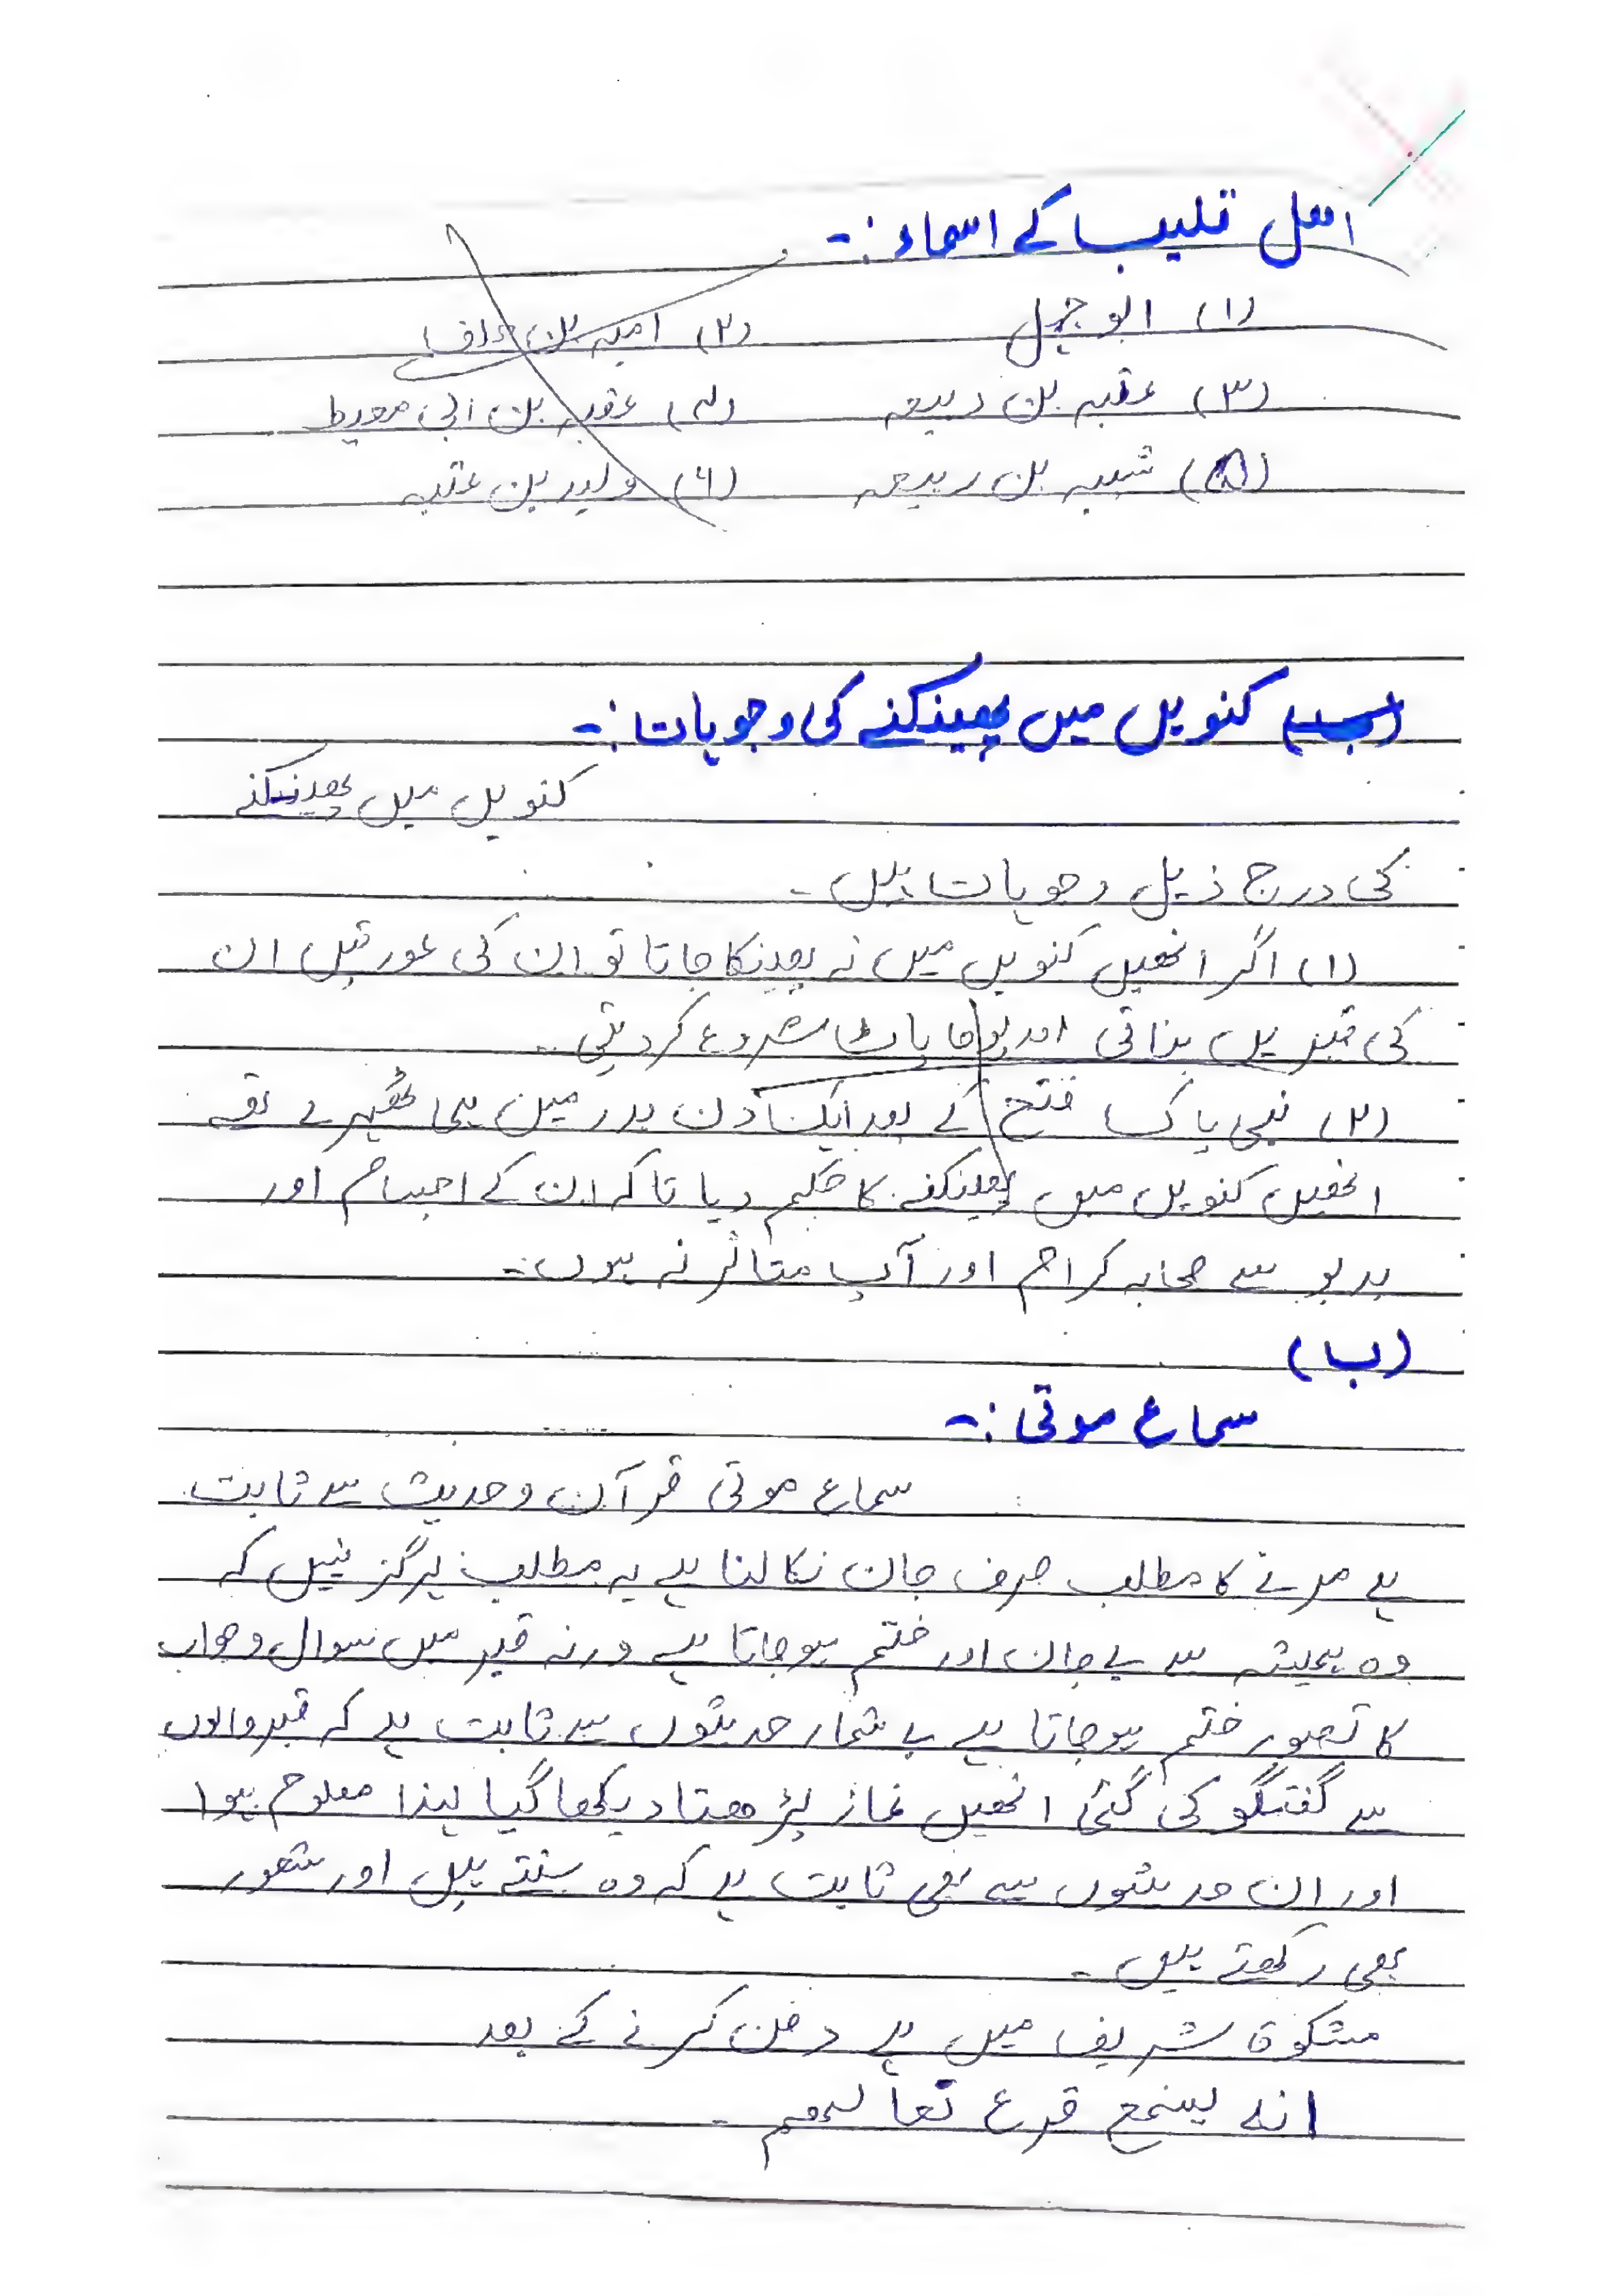 اہل قلیب کے اسماء :-
(۱) ابو جہل (۲) امیہ بن خلف
(۳) عتبہ بن ربیعہ (۴) عقبہ بن ابی معیط
(۵) شیبہ بن ربیعہ (۶) ولید بن عتبہ
کنویں میں پھینکنے کی وجوہات :-
کنویں میں پھینکنے
کی درج ذیل وجوہات ہیں ۔
(۱) اگر انھیں کنویں میں نہ پھینکا جاتا تو ان کی عورتیں ان
کی قبریں بناتی اور پوجا پاٹ شروع کر دیتی ۔
(۲) نبی پاک فتح کے بعد ایک دن بدر میں ہی ٹھہرے تھے
انھیں کنویں میں پھینکنے کا حکم دیا تا کہ ان کے اجسام اور
بدبو سے صحابہ کرام اور آپ متاثر نہ ہوں ۔
(ب)
سماع موتی :-
سماع موتی قرآن و حدیث سے ثابت
ہے مرنے کا مطلب صرف جان نکالنا ہے یہ مطلب ہرگز نہیں کہ
وہ ہمیشہ سے بے جان اور ختم ہو جاتا ہے ورنہ قبر میں سوال و جواب
کا تصور ختم ہو جاتا ہے بے شمار حدیثوں سے ثابت ہے کہ قبر والوں
سے گفتگو کی گئی انھیں نماز پڑھتا دیکھا گیا لہذا معلوم ہوا
اور ان حدیثوں سے بھی ثابت ہے کہ وہ سنتے ہیں اور شعور
بھی رکھتے ہیں ۔
مشکوۃ شریف میں ہے دفن کرنے کے بعد
انہ لیسمع قرع تعالھم ۔